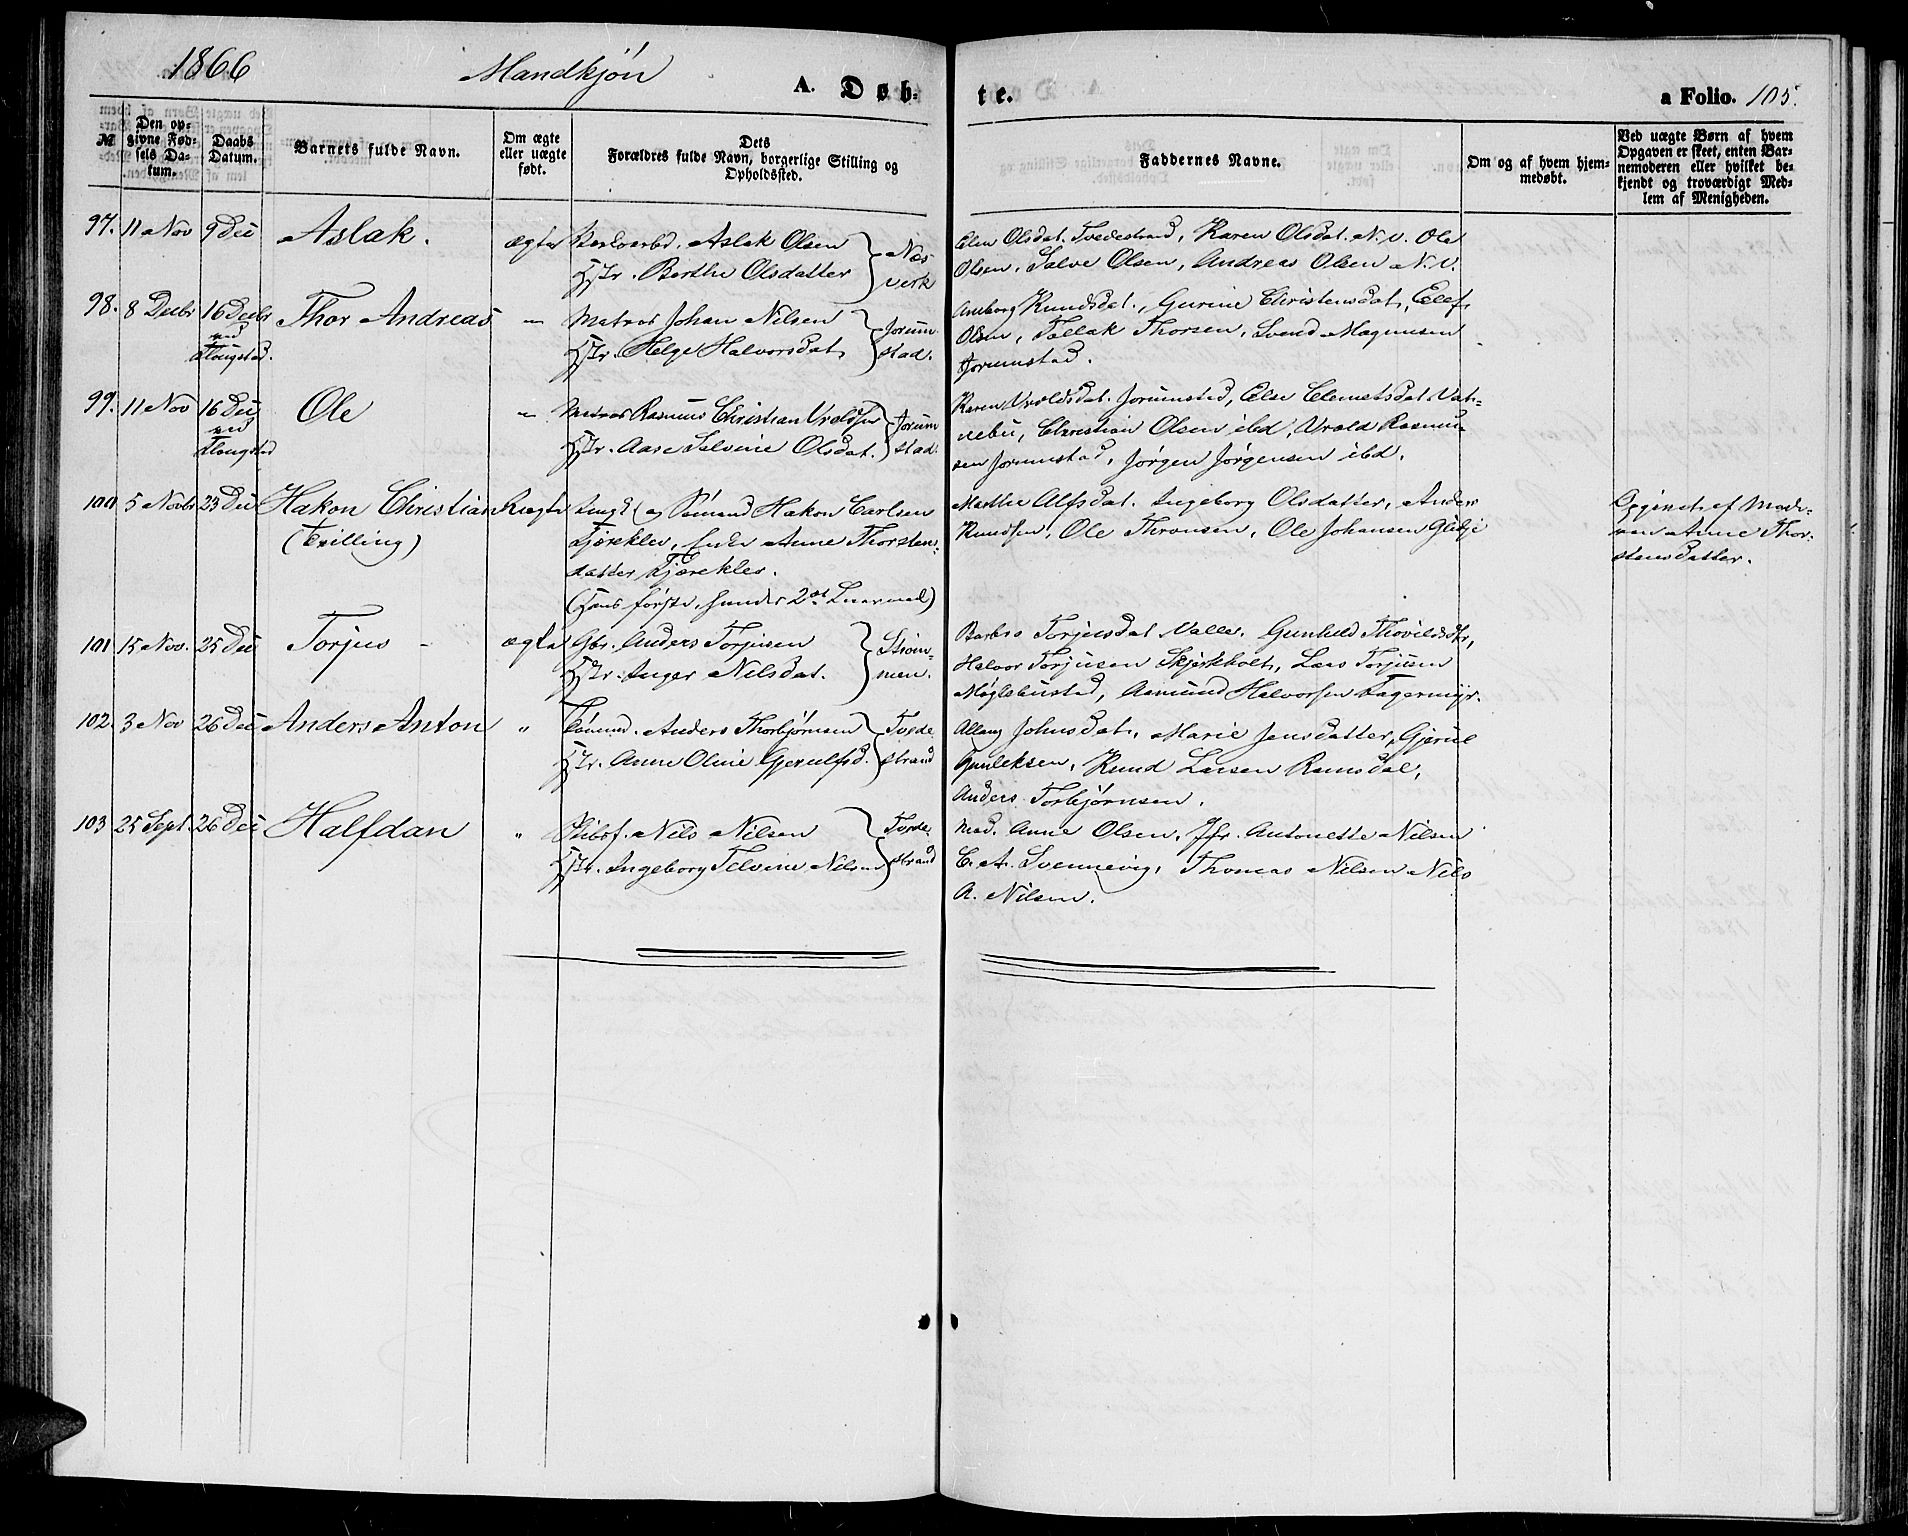 1866 Mandkjøn A. Døb-
te. a Folio. 105.
№
Den op-
givne Fød-
sels Da-
tum.
Daabs
Datum.
Barnets fulde Navn.
Om ægte
eller uægte
født.
Dets
Forældres fulde Navn, borgerlige Stilling og
Opholdssted.
Faddernes Navne.
Om og af hvem hjem-
medøbt.
Ved uægte Børn af hvem
Opgaven er skeet, enten Bar-
nemoderen eller hvilket be-
kjendt og troværdigt Med-
lem af Menigheden.
97. 11 Nov 9 Dec Aslak. ægte Aslak Olsen
Hstr. Berthe Olsdatter
Næs
verk
Elen Olsdat. Tvedestrand, Karen Olsdat. N.V. Ole
Olsen, Salve Olsen, Andreas Olsen N.V.
98. 8 Decbr 16 Decbr
ved
Flougstad.
Thor Andreas " Matros Johan Nilsen
Hstr. Helge Halvorsdat.
Jorum
stad.
Knudsdat., Gurine Christensdat., Eelef
Olsen, Tellak Thorsen, Svend Magnusen
Jorumstad.
99. 11 Nov 16 Dec
ved
Flougstad
Ole " Matros Rasmus Christian Vroldsen
Hstr. Aase Selvine Olsdat.
Jorum
stad.
Karen Vroldsdat. Jorumstad, Else Clemetsdat. Vat-
nebu, Christian Olsen ibd, Vrold Rasmu-
sen Jorumstad, Jørgen Jørgensen ibd.
100 5 Novbr 23 Dec Hakon Christian
(Tvilling)
Uægte Ungk. og Sømand Hakon Carlsen
Kjæreklev, Anne Thorstens-
datter Kjæreklev.
(Hans første, hendes 2det Leiermaal)
Marthe Alfsdat. Ingeborg Olsdatter, Anders
Knudsen, Ole Thronsen, Ole Johansen
Opgivet af Mode-
ren Anne Thor-
stensdatter.
101 15 Nov. 25 Dec Torjus - ægte Gbr. Anders Torjusen
Hstr. Inger Nilsdat.
men.
Barbro Torjusdat Valle. Gunhild
Halvor Torjusen Skjerkholt, Lars Torjusen
Møglebustad, Aamund Halvorsen Fagermyr.
102. 3 Nov 26 Dec Anders Anton " Sømand. Anders Thorbjørnsen
Hstr. Anne Oline Gjerulfsd.
Tvede
strand
Johnsdat., Marie Jensdatter,
Knud Larsen Ramsdal,
Anders Torbjørnsen.
103 25 Sept. 26 Dec Halfdan " Skibsf. Nils Nilsen
Hstr. Ingeborg Telvine Nilsen
Tvede-
strand
Mad. Anne Olsen, Jfr. Antonette Nilsen
C. A. Svennevig, Thomas Nilsen Nils
A. Nilsen.